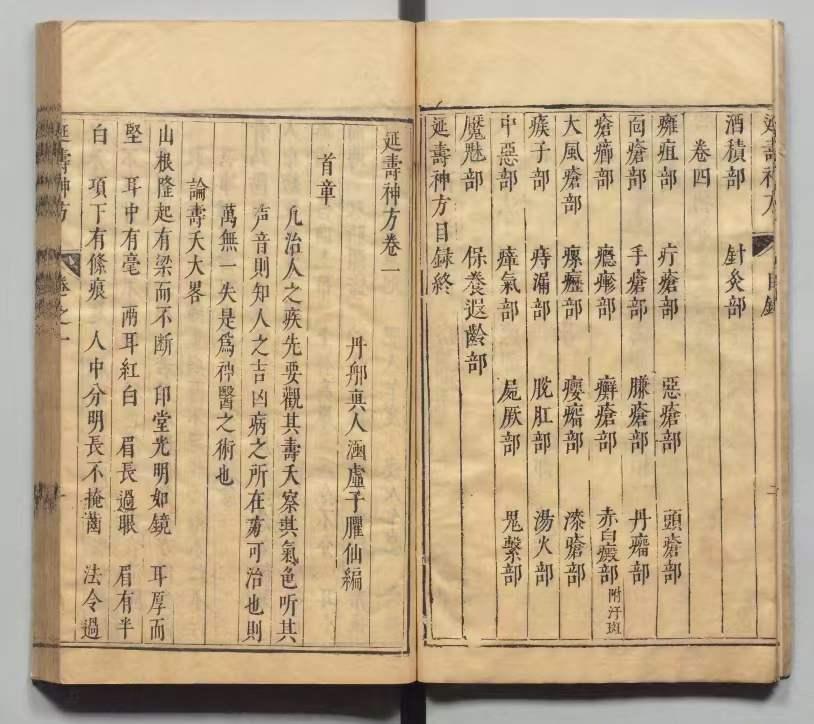 延壽神方 目錄
酒積部 針灸部
卷四
癰疽部 疔瘡部 惡瘡部 頭瘡部
靣瘡部 手瘡部 臁瘡部 丹瘤部
瘡癤部 癮疹部 癬瘡部 赤白癜部 附汗斑
大風瘡部 瘰癧部 癭瘤部 漆瘡部
瘊子部 痔漏部 脫肛部 湯火部
中惡部 瘴氣部 屍厥部 鬼繫部
魘魅部 保養遐齡部
延壽神方目録終
延壽神方卷一
丹丘眞人涵虛子臞仙編
首章
凢治人之疾先要觀其壽夭察其氣色听其
声音則知人之吉凶病之所在苟可治也則
萬無一失是爲神醫之術也
論壽夭大畧
山根隆起有梁而不断 印堂光明如鏡 耳厚而
堅 耳中有毫 兩耳紅白 眉長過眼 眉有半
白 項下有絛痕 人中分明長不掩齒 法令過
延壽神方 卷之一 一